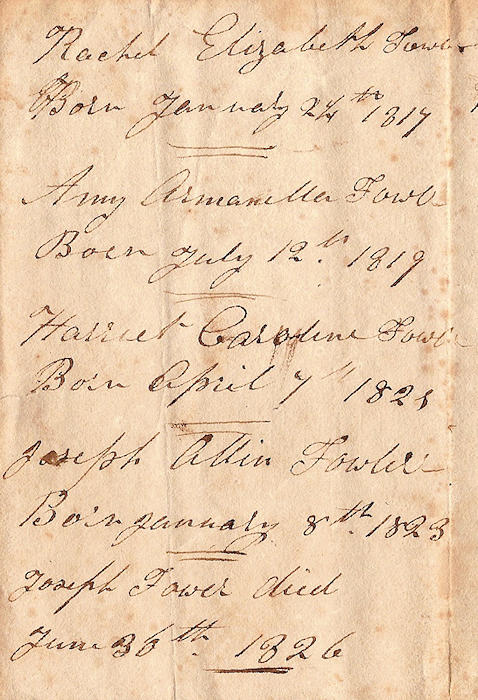 Rachel Elizabeth Fowler
Born January 24th 1817
Amy Armanella Fowle
Born July 12th 1819
Harriet Caroline Fowler
Born April 7th 1821
Joseph Allin Fowler
Born January 8th 1823
Joseph Fower died
June 30th 1826